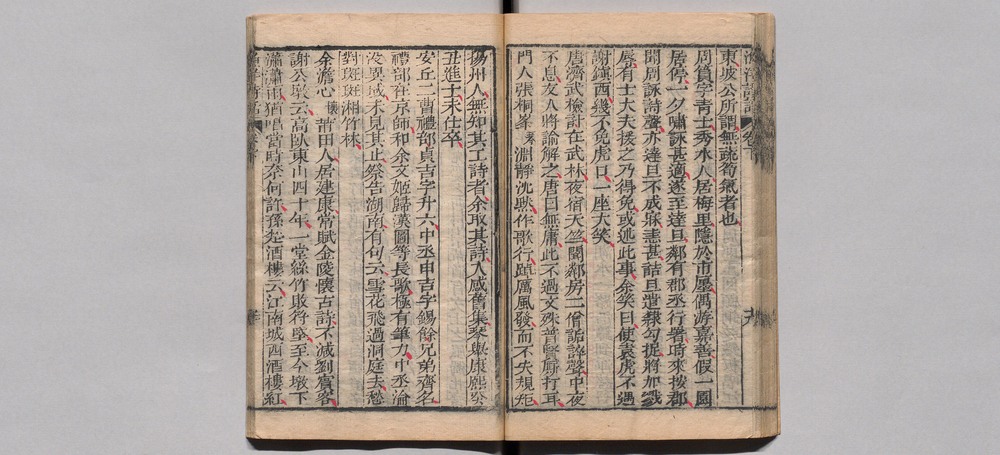 東坡公所謂無蔬筍氣者也
周篔字青士秀水人居梅里隱於市廛偶游嘉善假一園
居停一夕嘯詠甚適遂至達旦鄰有郡丞行署琦來按郡
聞周詠詩聲亦達旦不成寐恚甚詰旦遣隸勾捉將加戮
辱有士大夫援之乃得免或述此事余笑曰使袁虎不遇
謝鎮西幾不免虎口一座大笑
唐濟武檢討在武林夜宿天竺聞鄰房二僧詬誶聲中夜
不息友人將諭解之唐曰無庸此不過文殊普賢廝打耳
門人張桐峯淵靜沈默作歌行踔厲風發而不失規矩
揚州人無知其工詩者余取其詩入感舊集琴舉康熙癸
丑進士未仕卒
安丘二曹禮部貞吉字升六中丞申吉字錫餘兄弟齊名
禮部在京師和余文姬歸漢圖等長歌極有筆力中丞淪
沒異域未見其止祭告湖南有句云雪花飛過洞庭去愁
對斑斑湘竹林
余澹心懷莆田人居建康常賦金陵懷古詩不減劉賓客
謝公墩云高臥東山四十年一堂絲竹敗苻堅至今墩下
瀟瀟雨猶唱當時奈何許孫楚酒樓云江南城西酒樓紅